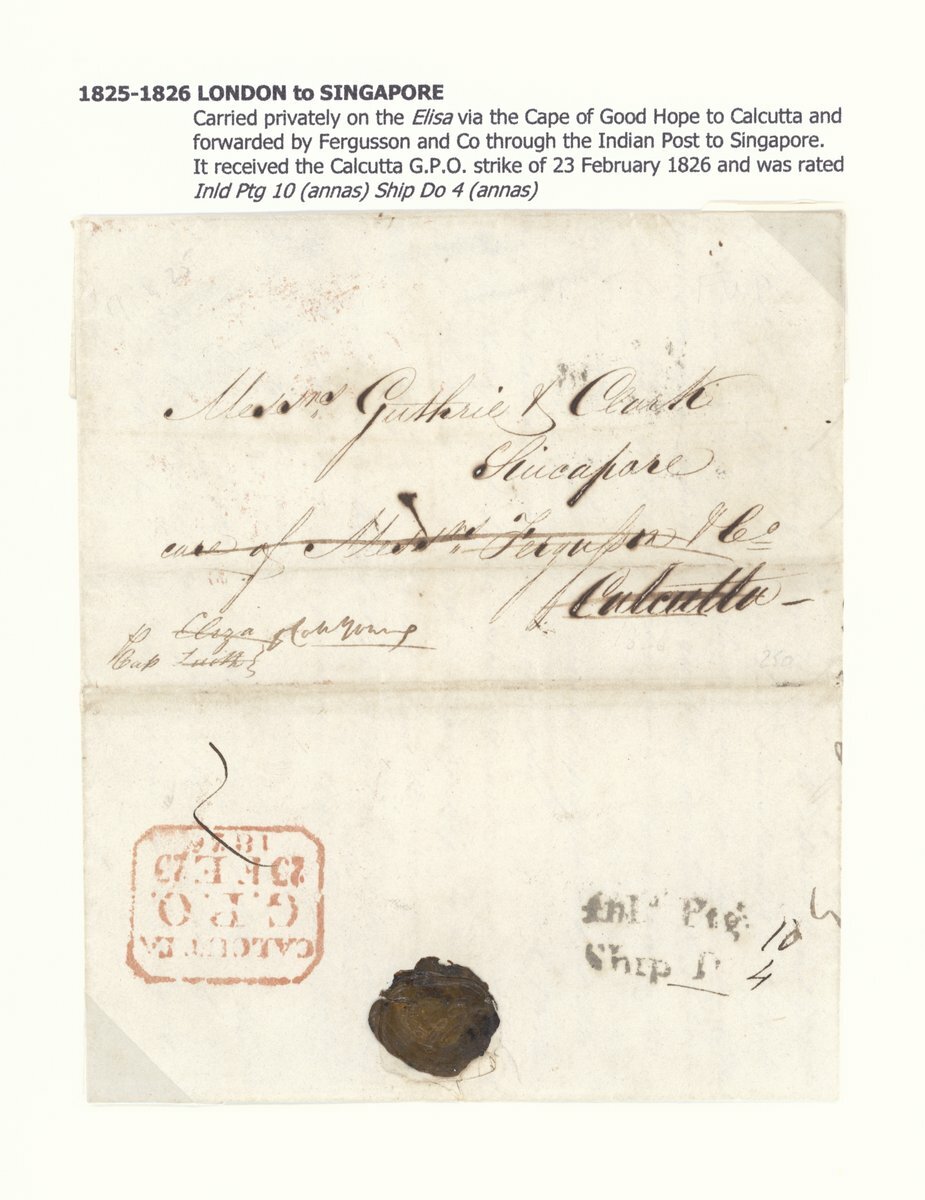 1825-1826 LONDON to SINGAPORE
Carried privately on the Elisa via the Cape of Good Hope to Calcutta and
forwarded by Fergusson and Co through the Indian Post to Singapore.
It received the Calcutta G.P.O. strike of 23 February 1826 and was rated
Inld Ptg 10 (annas) Ship Do 4 (annas)
Messrs Guthrie & Clark
Sincapore
care of Messrs Fergusson & Co
Calcutta
Eliza
Cap
250
CALCUTTA
G.P.O.
23 FE 23
1826
Inld Ptg. 10
Ship D 4